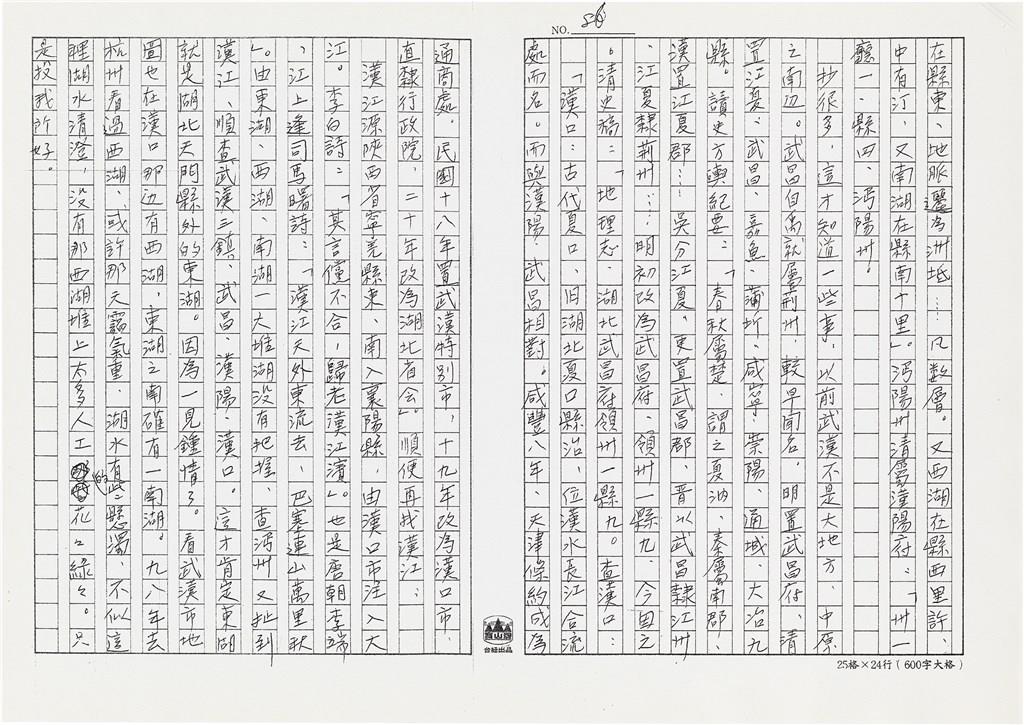 NO. 86
在縣東、地脈邐為洲坻……凡數層。又西湖在縣西里許、
中有汀、又南湖在縣南十里」。沔陽州清屬漢陽府：「州一
廳一、縣四、沔陽州。
抄很多，這才知道一些事，以前武漢不是大地方，中原
之南辺。武昌自禹就屬荊州，較早聞名。明置武昌府，清
置江夏：武昌、嘉魚、蒲圻、咸寧、崇陽、通城、大冶九
縣。讀史方輿紀要：「春秋屬楚、謂之夏汭、秦屬南郡、
漢置江夏郡……吳分江夏、更置武昌郡、晋以武昌隸江州
、江夏隸荊州……明初改為武昌府、領州一縣九、今因之
。清史稿：「地理志、湖北武昌府領州一縣九。查漢口：
「漢口：古代夏口、旧湖北夏口縣治、位漢水長江合流
處而名。而與漢陽、武昌相對。咸豐八年、天津條約成為
通商處。民國十八年置武漢特別市，十九年改為漢口市，
直隸行政院，二十年改為湖北省会」。順便再找漢江：
漢江源陝西省寧羌縣東、南入襄陽縣，由漢口市注入大
江。李白詩：「其言僅不合，歸老漢江濱」。也是唐朝李端
、江上逢司馬曙詩：「漢江天外東流去，巴塞連山萬里秋
」。由東湖、西湖、南湖一大堆湖没有把握、查沔州又扯到
漢江、順查武漢三鎮、武昌、漢陽、漢口。這才肯定東湖
就是湖北天門縣外的東湖。因為一見鍾情了。看武漢市地
圖也在漢口那边有西湖，東湖之南確有一南湖。九八年去
杭州看過西湖，或許那天霧氣重，湖水有些懸濁、不似這
裡湖水清澄，没有那西湖堆上太多人工的花々綠々。只
是投我所好。
高山牌
台紐出品
25格×24行（600字大格）